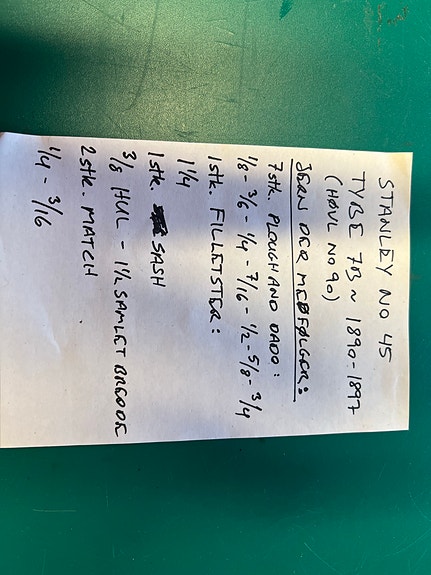 STANLEY NO 45
TYPE 7B ~ 1890-1897
(HØVL NO 90)
JERN DER MEDFØLGER:
7stk. PLOUGH AND DADO:
1/8 - 3/6 - 1/4 - 7/16 - 1/2 - 5/8 - 3/4
1stk. FILLETSTER:
1/4
1stk. SASH
3/8 HUL - 1 1/2 SAMLET BREDDE
2stk. MATCH
1/4 - 3/16